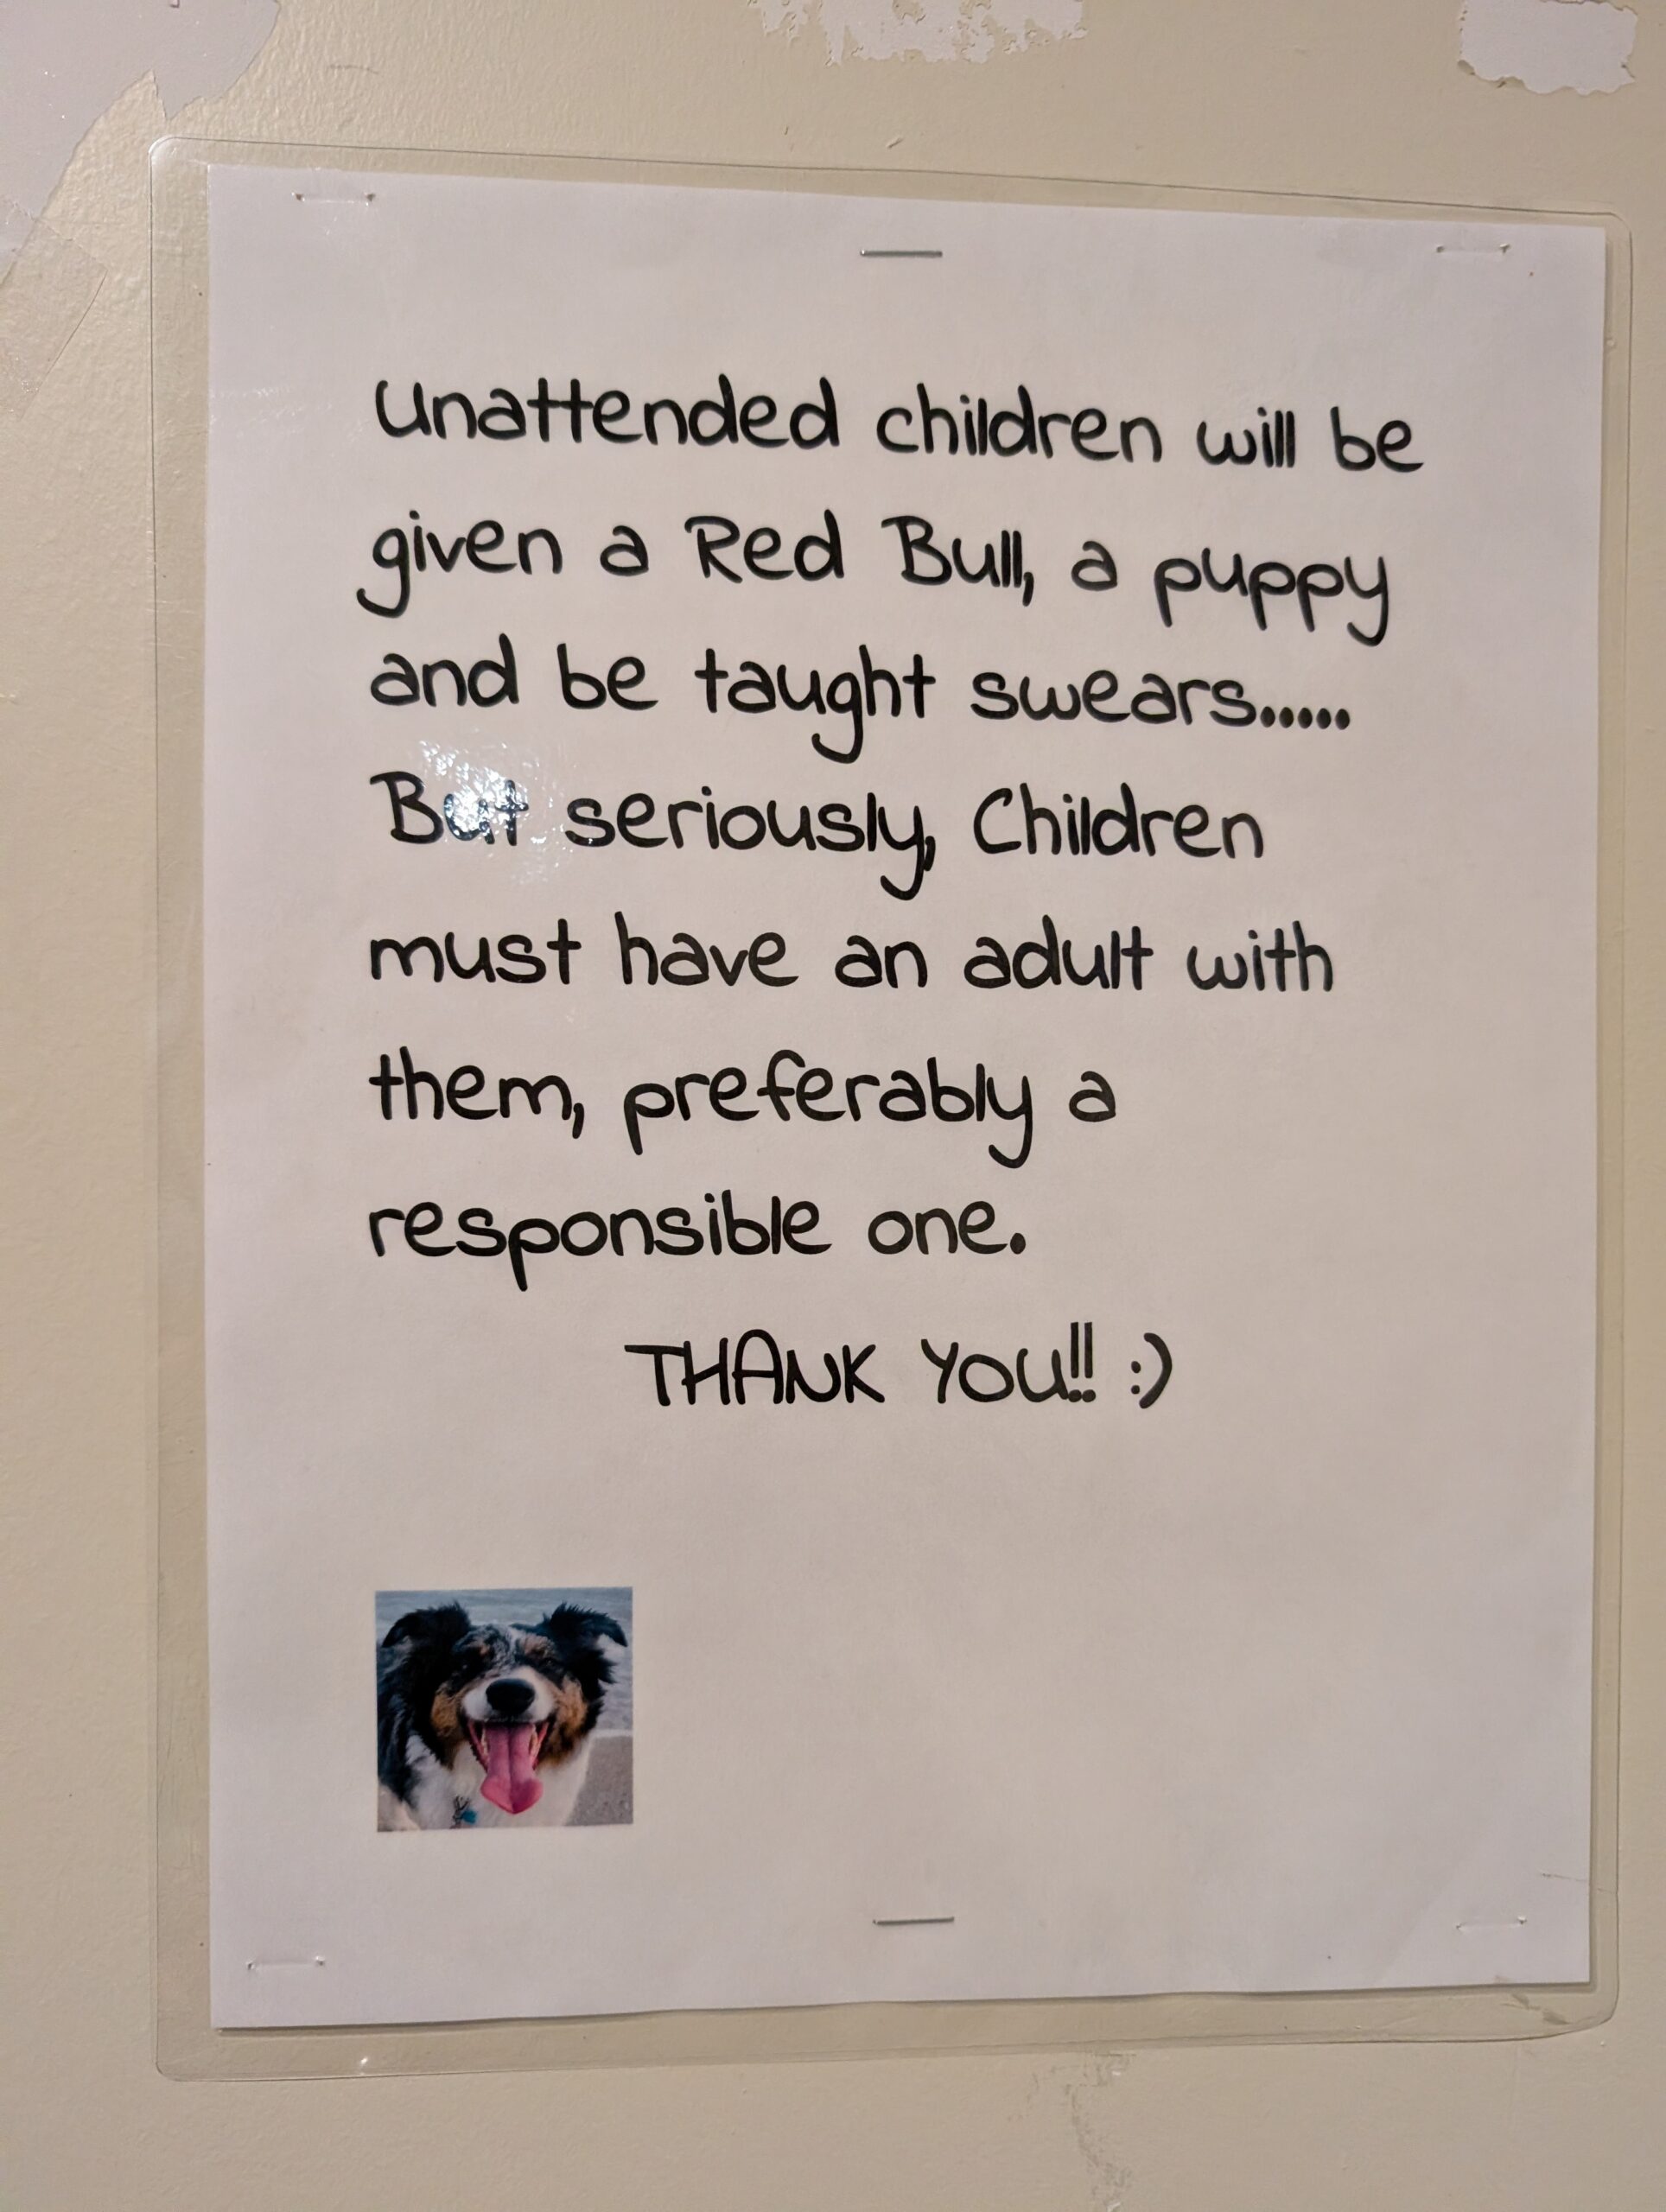 Unattended children will be
given a Red Bull, a puppy
and be taught swears.....
But seriously, Children
must have an adult with
them, preferably a
responsible one.
THANK YOU!! :)